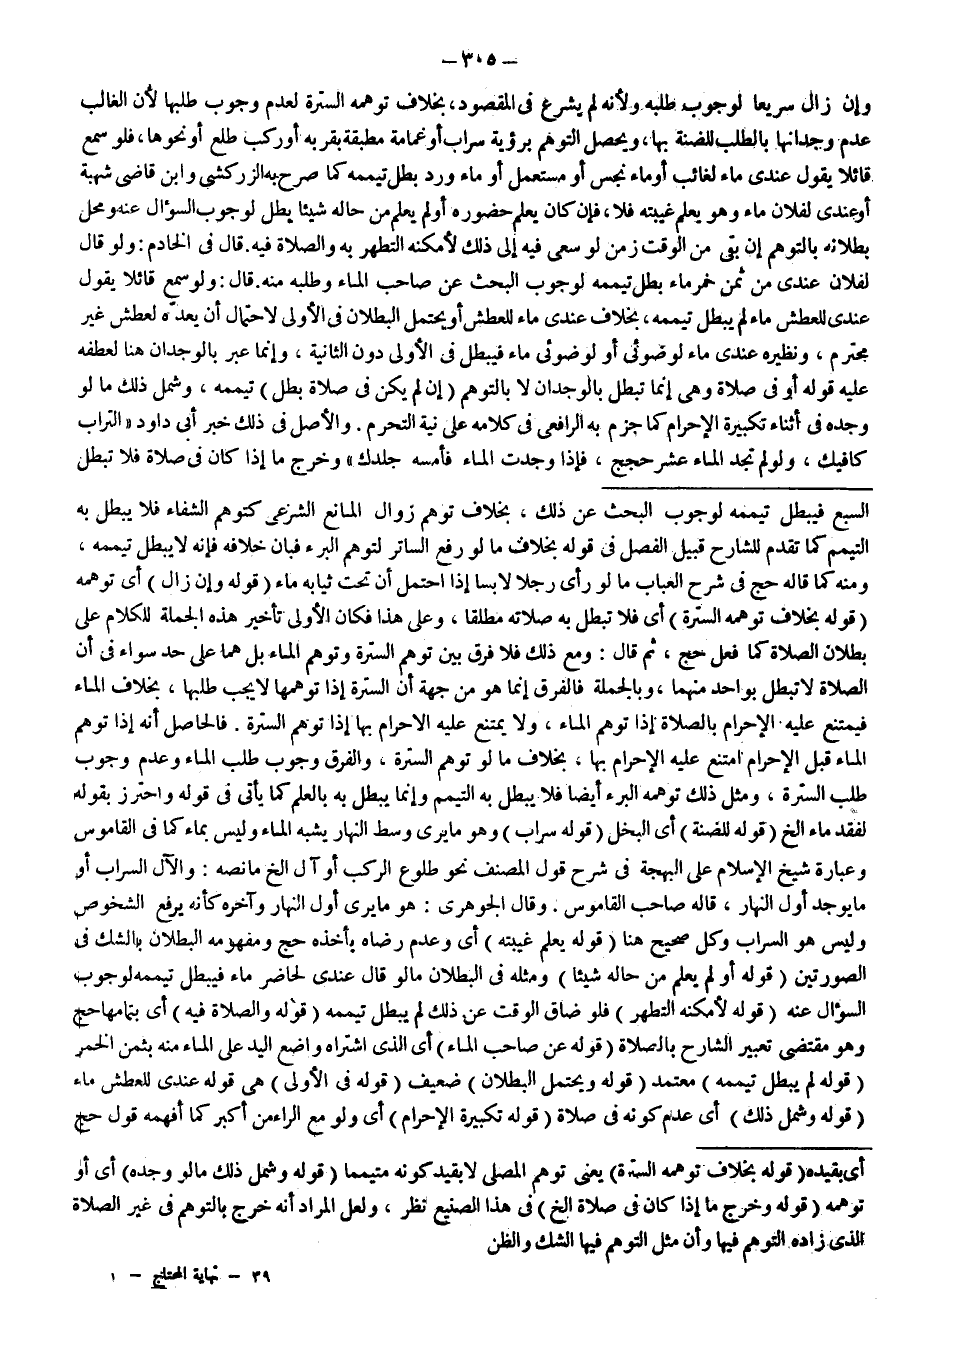 — ٣٠٥ —
وإن زال سريعا لوجوب طلبه ولأنه لم يشرع فى المقصود، بخلاف توهمه السترة لعدم وجوب طلبها لأن الغالب
عدم وجدانها بالطلب للضنة بها، ويحصل التوهم برؤية سراب أو غمامة مطبقة بقربه أو ركب طلع أو نحوها، فلو سمع
قائلا يقول عندى ماء لغائب أو ماء نجس أو مستعمل أو ماء ورد بطل تيممه كما صرح به الزركشى وابن قاضى شهبة
أو عندى لفلان ماء وهو يعلم غيبته فلا، فإن كان يعلم حضوره أو لم يعلم من حاله شيئا بطل لوجوب السؤال عنه ومحل
بطلانه بالتوهم إن بقى من الوقت زمن لو سعى فيه إلى ذلك لأمكنه التطهر به والصلاة فيه. قال فى الخادم : ولو قال
لفلان عندى من ثمن خمر ماء بطل تيممه لوجوب البحث عن صاحب الماء وطلبه منه. قال : ولو سمع قائلا يقول
عندى للعطش ماء لم يبطل تيممه، بخلاف عندى ماء للعطش أو يحتمل البطلان فى الأولى لاحتمال أن يعدّه لعطش غير
محترم ، ونظيره عندى ماء لوضوئى أو لوضوئى ماء فيبطل فى الأولى دون الثانية ، وإنما عبر بالوجدان هنا لعطفه
عليه قوله أو فى صلاة وهى إنما تبطل بالوجدان لا بالتوهم (إن لم يكن فى صلاة بطل) تيممه ، وشمل ذلك ما لو
وجده فى أثناء تكبيرة الإحرام كما جزم به الرافعى فى كلامه على نية التحرم . والأصل فى ذلك خبر أبى داود «التراب
كافيك ، ولو لم تجد الماء عشر حجج ، فإذا وجدت الماء فأمسه جلدك» وخرج ما إذا كان فى صلاة فلا تبطل
السبع فيبطل تيممه لوجوب البحث عن ذلك ، بخلاف توهم زوال المانع الشرعى كتوهم الشفاء فلا يبطل به
التيمم كما تقدم للشارح قبيل الفصل فى قوله بخلاف ما لو رفع الساتر لتوهم البرء فبان خلافه فإنه لا يبطل تيممه ،
ومنه كما قاله حج فى شرح العباب ما لو رأى رجلا لابسا إذا احتمل أن تحت ثيابه ماء (قوله وإن زال) أى توهمه
(قوله بخلاف توهمه السترة) أى فلا تبطل به صلاته مطلقا ، وعلى هذا فكان الأولى تأخير هذه الجملة للكلام على
بطلان الصلاة كما فعل حج ، ثم قال : ومع ذلك فلا فرق بين توهم السترة وتوهم الماء بل هما على حد سواء فى أن
الصلاة لا تبطل بواحد منهما ، وبالجملة فالفرق إنما هو من جهة أن السترة إذا توهمها لا يجب طلبها ، بخلاف الماء
فيمتنع عليه الإحرام بالصلاة إذا توهم الماء ، ولا يمتنع عليه الاحرام بها إذا توهم السترة . فالحاصل أنه إذا توهم
الماء قبل الإحرام امتنع عليه الإحرام بها ، بخلاف ما لو توهم السترة ، والفرق وجوب طلب الماء وعدم وجوب
طلب السترة ، ومثل ذلك توهمه البرء أيضا فلا يبطل به التيمم وإنما يبطل به بالعلم كما يأتى فى قوله واحترز بقوله
لفقد ماء الخ (قوله للضنة) أى البخل (قوله سراب) وهو ما يرى وسط النهار يشبه الماء وليس بماء كما فى القاموس
وعبارة شيخ الإسلام على البهجة فى شرح قول المصنف نحو طلوع الركب أو آل الخ ما نصه : والآل السراب أو
ما يوجد أول النهار ، قاله صاحب القاموس . وقال الجوهرى : هو ما يرى أول النهار وآخره كأنه يرفع الشخوص
وليس هو السراب وكل صحيح هنا (قوله يعلم غيبته) أى وعدم رضاه بأخذه حج ومفهومه البطلان بالشك فى
الصورتين (قوله أو لم يعلم من حاله شيئا) ومثله فى البطلان ما لو قال عندى لحاضر ماء فيبطل تيممه لوجوب
السؤال عنه (قوله لأمكنه التطهر) فلو ضاق الوقت عن ذلك لم يبطل تيممه (قوله والصلاة فيه) أى بتمامها حج
وهو مقتضى تعبير الشارح بالصلاة (قوله عن صاحب الماء) أى الذى اشتراه واضع اليد على الماء منه بثمن الخمر
(قوله لم يبطل تيممه) معتمد (قوله ويحتمل البطلان) ضعيف (قوله فى الأولى) هى قوله عندى للعطش ماء
(قوله وشمل ذلك) أى عدم كونه فى صلاة (قوله تكبيرة الإحرام) أى ولو مع الراء من أكبر كما أفهمه قول حج
أى بقيده (قوله بخلاف توهمه السترة) يعنى توهم المصلى لا بقيد كونه متيمما (قوله وشمل ذلك ما لو وجده) أى أو
توهمه (قوله وخرج ما إذا كان فى صلاة الخ) فى هذا الصنيع نظر ، ولعل المراد أنه خرج بالتوهم فى غير الصلاة
الذى زاده التوهم فيها وأن مثل التوهم فيها الشك والظن
٣٩ – نهاية المحتاج – ١